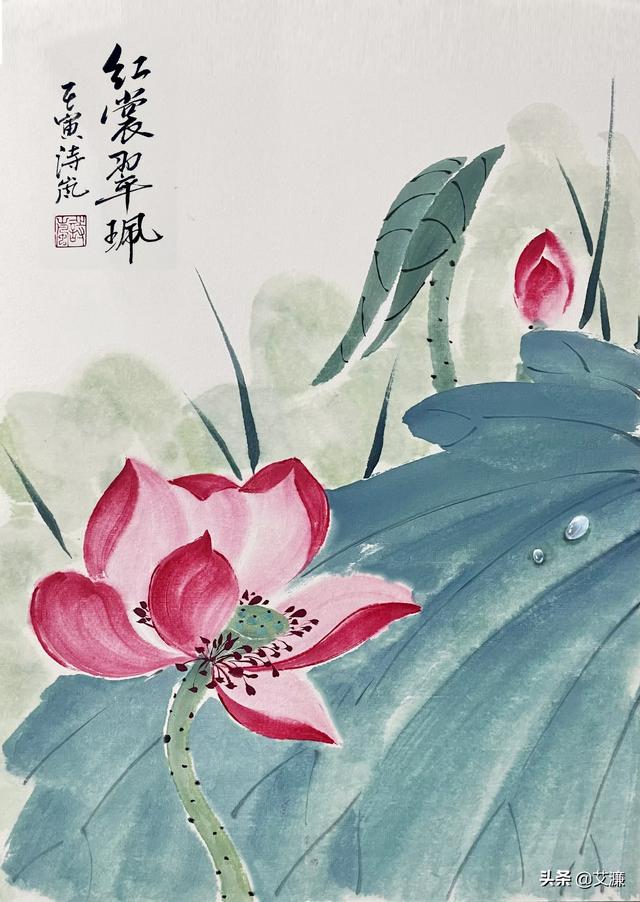 红裳翠珮
壬寅诗岚
头条 @艾濂